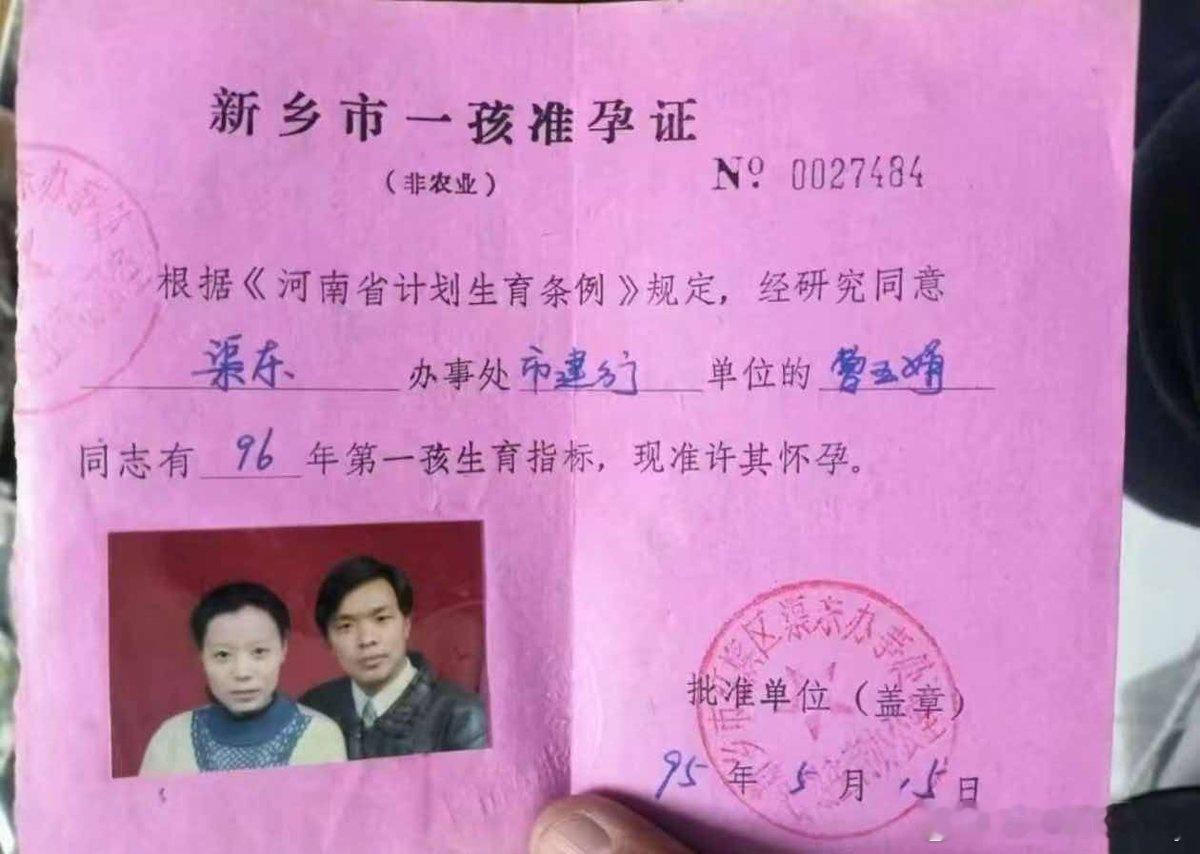 新乡市一孩准孕证
(非农业)
Nº 0027484
根据《河南省计划生育条例》规定，经研究同意
渠东 办事处 市建行 单位的 曹玉娟
同志有 96 年第一孩生育指标，现准许其怀孕。
批准单位（盖章）
95 年 5 月 15 日
区渠东办事处